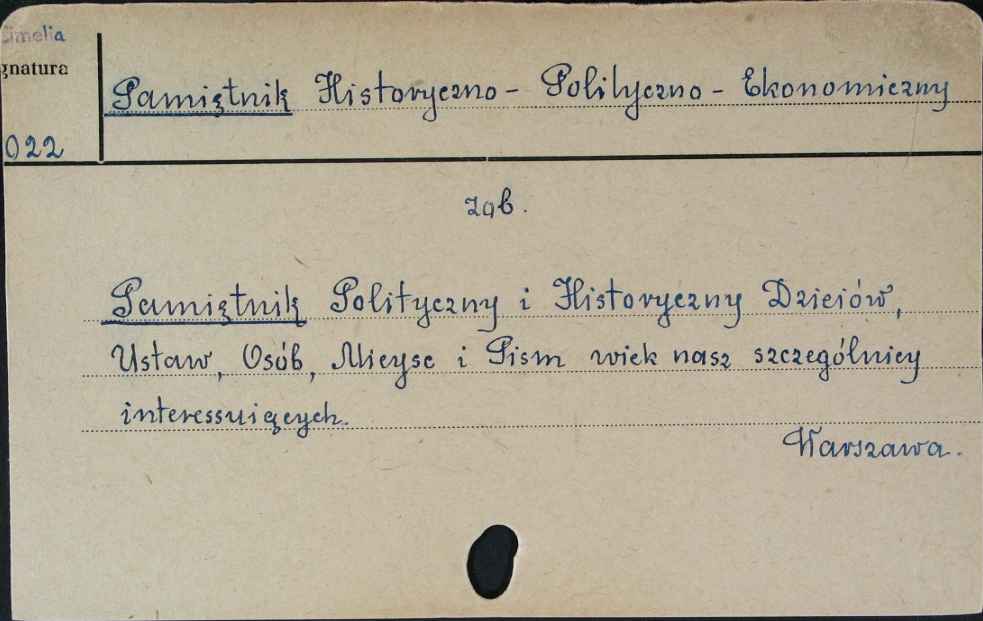 Cimelia
gnatura
022
Pamiętnik Historyczno - Polityczno - Ekonomiczny
zob.
Pamiętnik Polityczny i Historyczny Dzieiów,
Ustaw, Osób, Mieysc i Pism wiek nasz szczególniey
interessuiących.
Warszawa.